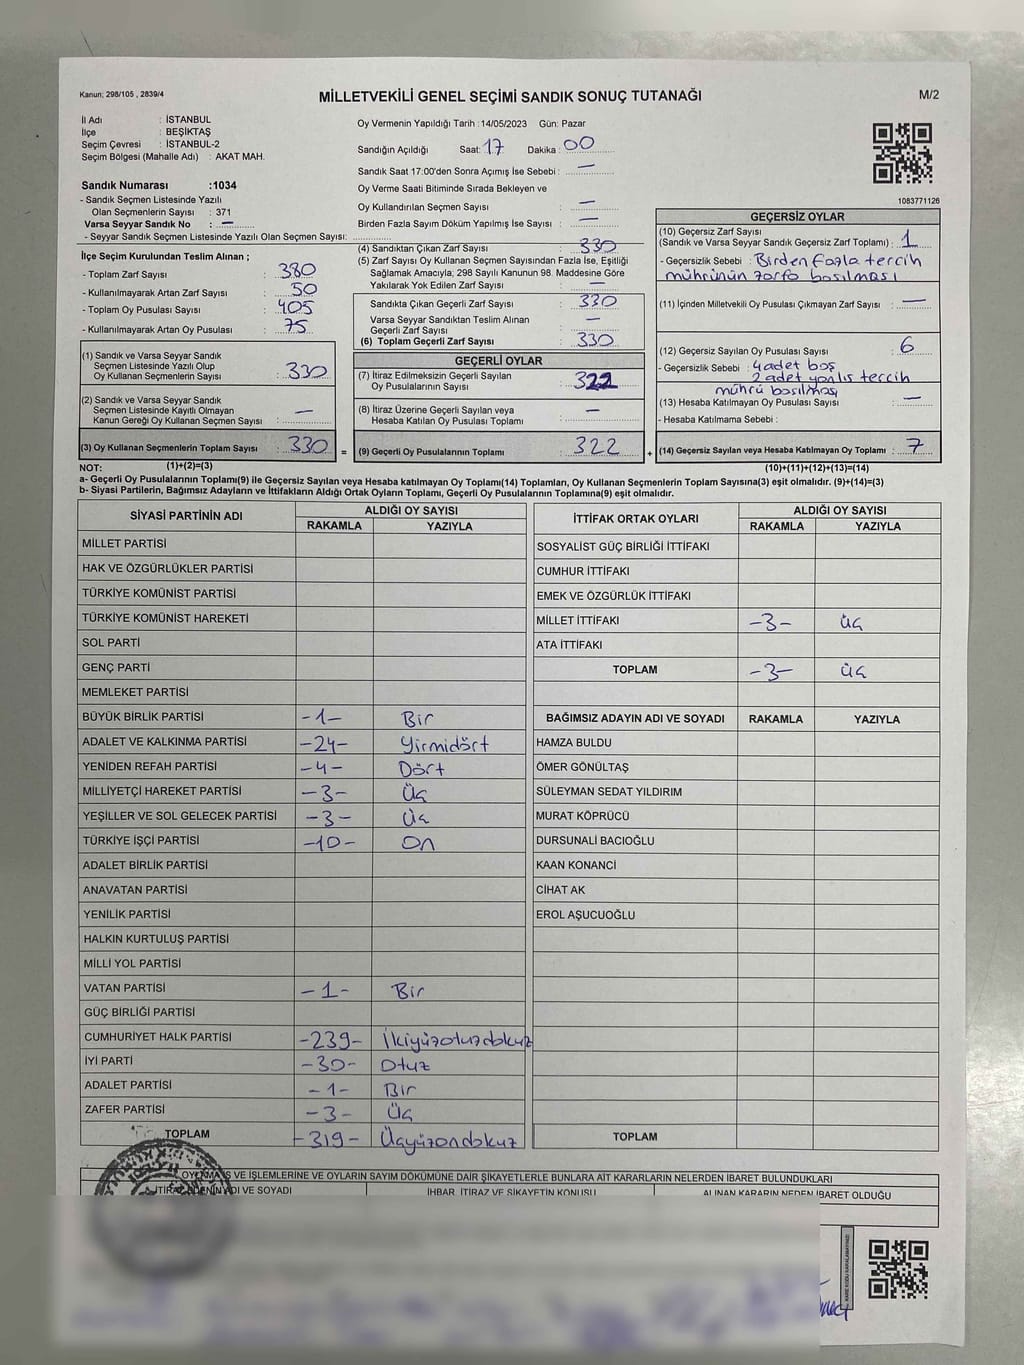 Kanun; 298/105 , 2839/4
MİLLETVEKİLİ GENEL SEÇİMİ SANDIK SONUÇ TUTANAĞI
M/2
İl Adı : İSTANBUL
İlçe : BEŞİKTAŞ
Seçim Çevresi : İSTANBUL-2
Seçim Bölgesi (Mahalle Adı) : AKAT MAH.
Sandık Numarası :1034
- Sandık Seçmen Listesinde Yazılı
Olan Seçmenlerin Sayısı : 371
Varsa Seyyar Sandık No : —
- Seyyar Sandık Seçmen Listesinde Yazılı Olan Seçmen Sayısı:
Oy Vermenin Yapıldığı Tarih :14/05/2023 Gün: Pazar
Sandığın Açıldığı Saat: 17 Dakika : 00
Sandık Saat 17:00'den Sonra Açımış İse Sebebi : —
Oy Verme Saati Bitiminde Sırada Bekleyen ve
Oy Kullandırılan Seçmen Sayısı : —
Birden Fazla Sayım Döküm Yapılmış İse Sayısı : —
1083771126
İlçe Seçim Kurulundan Teslim Alınan ;
- Toplam Zarf Sayısı : 380
- Kullanılmayarak Artan Zarf Sayısı : 50
- Toplam Oy Pusulası Sayısı : 405
- Kullanılmayarak Artan Oy Pusulası : 75
(1) Sandık ve Varsa Seyyar Sandık
Seçmen Listesinde Yazılı Olup
Oy Kullanan Seçmenlerin Sayısı : 330
(2) Sandık ve Varsa Seyyar Sandık
Seçmen Listesinde Kayıtlı Olmayan
Kanun Gereği Oy Kullanan Seçmen Sayısı : —
(3) Oy Kullanan Seçmenlerin Toplam Sayısı : 330
(1)+(2)=(3)
(4) Sandıktan Çıkan Zarf Sayısı : 330
(5) Zarf Sayısı Oy Kullanan Seçmen Sayısından Fazla İse, Eşitliği
Sağlamak Amacıyla, 298 Sayılı Kanunun 98. Maddesine Göre
Yakılarak Yok Edilen Zarf Sayısı : —
Sandıkta Çıkan Geçerli Zarf Sayısı : 330
Varsa Seyyar Sandıktan Teslim Alınan
Geçerli Zarf Sayısı : —
(6) Toplam Geçerli Zarf Sayısı : 330
GEÇERLİ OYLAR
(7) İtiraz Edilmeksizin Geçerli Sayılan
Oy Pusulalarının Sayısı : 322
(8) İtiraz Üzerine Geçerli Sayılan veya
Hesaba Katılan Oy Pusulası Toplamı : —
= (9) Geçerli Oy Pusulalarının Toplamı : 322 +
GEÇERSİZ OYLAR
(10) Geçersiz Zarf Sayısı
(Sandık ve Varsa Seyyar Sandık Geçersiz Zarf Toplamı) : 1
- Geçersizlik Sebebi : Birden fazla tercih
mührünün zarfa basılması
(11) İçinden Milletvekili Oy Pusulası Çıkmayan Zarf Sayısı : —
(12) Geçersiz Sayılan Oy Pusulası Sayısı : 6
- Geçersizlik Sebebi : 4 adet boş
2 adet yanlış tercih
mührü basılması
(13) Hesaba Katılmayan Oy Pusulası Sayısı : —
- Hesaba Katılmama Sebebi :
(14) Geçersiz Sayılan veya Hesaba Katılmayan Oy Toplamı : 7
(10)+(11)+(12)+(13)=(14)
NOT:
a- Geçerli Oy Pusulalarının Toplamı(9) ile Geçersiz Sayılan veya Hesaba katılmayan Oy Toplamı(14) Toplamları, Oy Kullanan Seçmenlerin Toplam Sayısına(3) eşit olmalıdır. (9)+(14)=(3)
b- Siyasi Partilerin, Bağımsız Adayların ve İttifakların Aldığı Ortak Oyların Toplamı, Geçerli Oy Pusulalarının Toplamına(9) eşit olmalıdır.
SİYASİ PARTİNİN ADI ALDIĞI OY SAYISI
RAKAMLA YAZIYLA
MİLLET PARTİSİ
HAK VE ÖZGÜRLÜKLER PARTİSİ
TÜRKİYE KOMÜNİST PARTİSİ
TÜRKİYE KOMÜNİST HAREKETİ
SOL PARTİ
GENÇ PARTİ
MEMLEKET PARTİSİ
BÜYÜK BİRLİK PARTİSİ -1- Bir
ADALET VE KALKINMA PARTİSİ -24- Yirmidört
YENİDEN REFAH PARTİSİ -4- Dört
MİLLİYETÇİ HAREKET PARTİSİ -3- Üç
YEŞİLLER VE SOL GELECEK PARTİSİ -3- Üç
TÜRKİYE İŞÇİ PARTİSİ -10- On
ADALET BİRLİK PARTİSİ
ANAVATAN PARTİSİ
YENİLİK PARTİSİ
HALKIN KURTULUŞ PARTİSİ
MİLLİ YOL PARTİSİ
VATAN PARTİSİ -1- Bir
GÜÇ BİRLİĞİ PARTİSİ
CUMHURİYET HALK PARTİSİ -239- İkiyüzotuzdokuz
İYİ PARTİ -30- Otuz
ADALET PARTİSİ -1- Bir
ZAFER PARTİSİ -3- Üç
TOPLAM -319- Üçyüzondokuz
İTTİFAK ORTAK OYLARI ALDIĞI OY SAYISI
RAKAMLA YAZIYLA
SOSYALİST GÜÇ BİRLİĞİ İTTİFAKI
CUMHUR İTTİFAKI
EMEK VE ÖZGÜRLÜK İTTİFAKI
MİLLET İTTİFAKI -3- üç
ATA İTTİFAKI
TOPLAM -3- üç
BAĞIMSIZ ADAYIN ADI VE SOYADI RAKAMLA YAZIYLA
HAMZA BULDU
ÖMER GÖNÜLTAŞ
SÜLEYMAN SEDAT YILDIRIM
MURAT KÖPRÜCÜ
DURSUNALİ BACIOĞLU
KAAN KONANCİ
CİHAT AK
EROL AŞUCUOĞLU
TOPLAM
VE İŞLEMLERİNE VE OYLARIN SAYIM DÖKÜMÜNE DAİR ŞİKAYETLERLE BUNLARA AİT KARARLARIN NELERDEN İBARET BULUNDUKLARI
İTİRAZ EDENİN ADI VE SOYADI İHBAR, İTİRAZ VE ŞİKAYETİN KONUSU ALINAN KARARIN NEDEN İBARET OLDUĞU